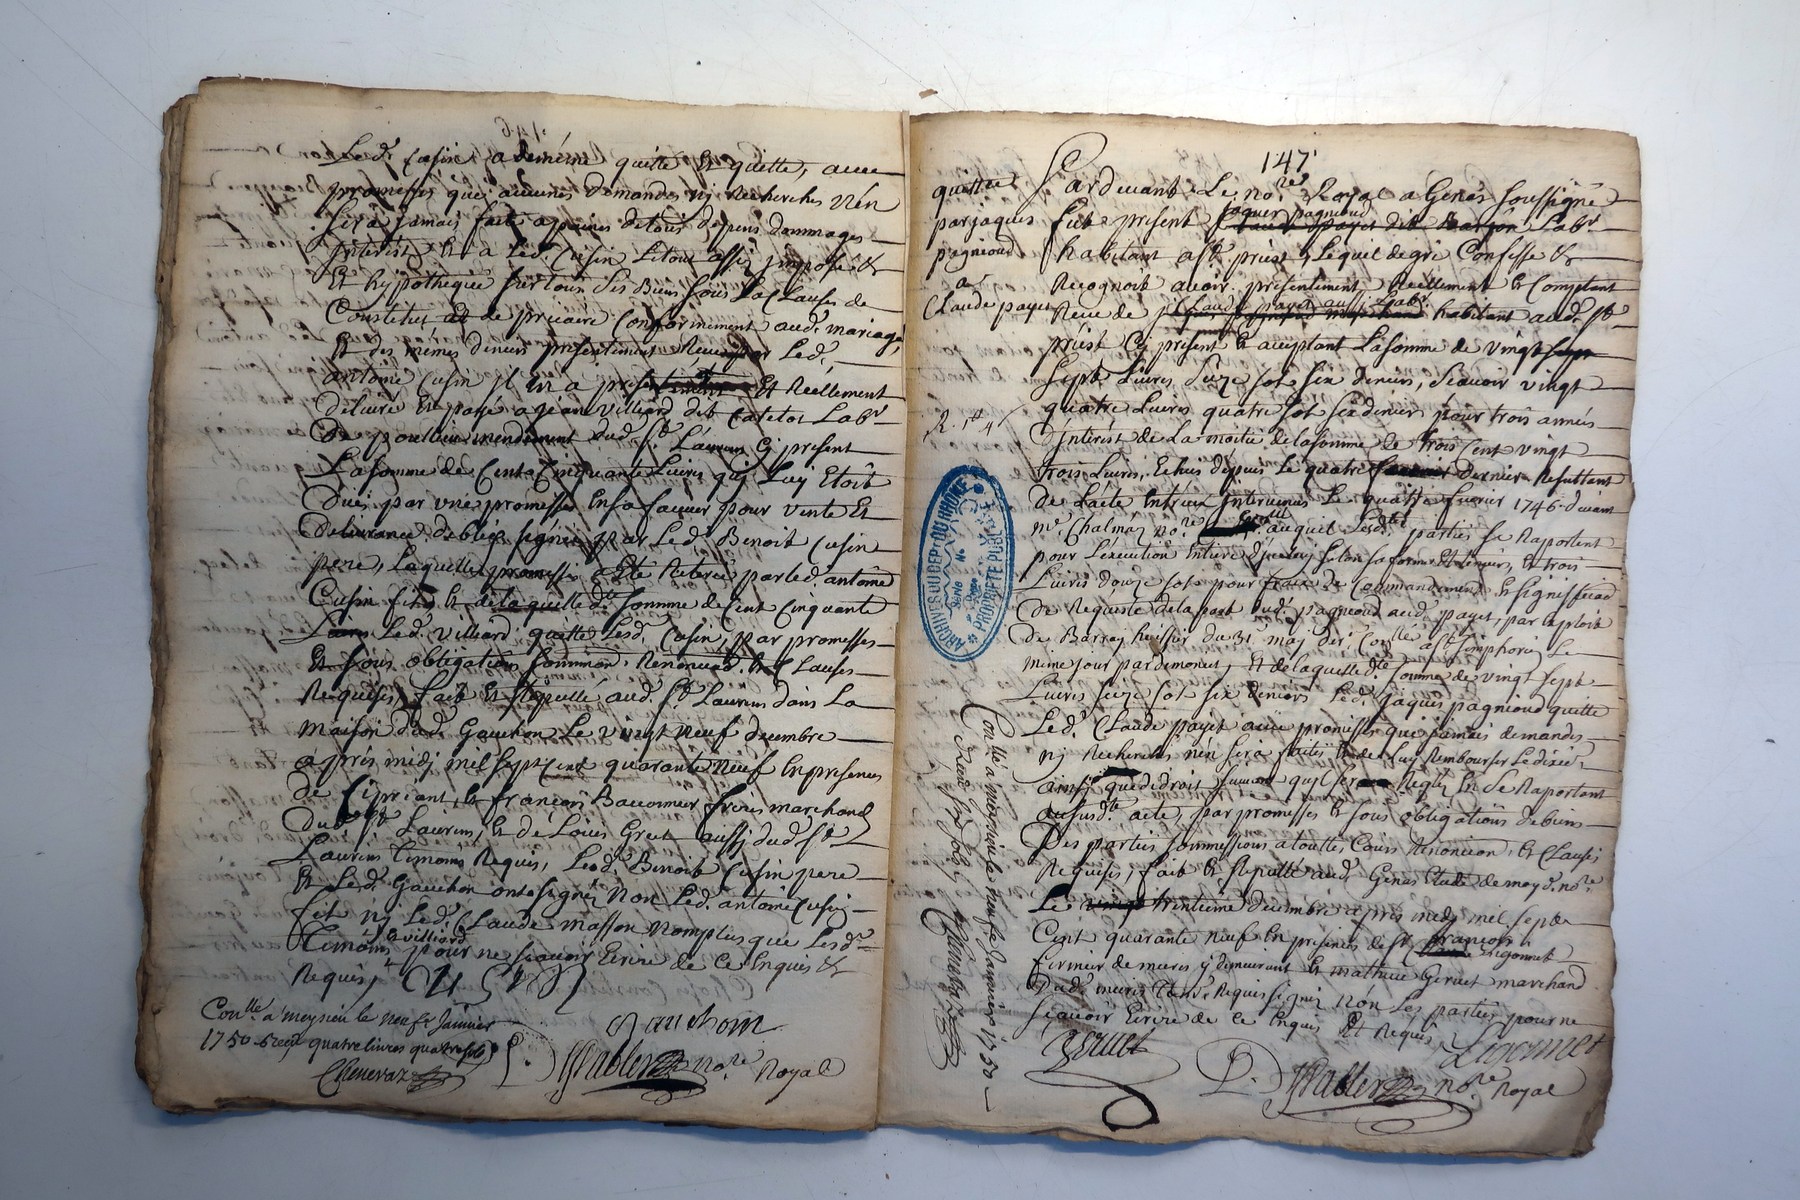 Led. Cusin a demême quitté Et quitte, avec
promesses que aucunes demandes nj Recherches n'En
sera jamais fait apeines de tous depens dommages
Interest Et a Led. Cusin Le tout assis Imposé &
Et hypothequé sur tous ses Biens sous La Clauses de
Constitut et de precaire Conformement aud. mariage,
Et des mêmes deniers presentement Receus par Led.
antoine Cusin jl En a presentement Et Réellement
délivré Et payé a jean villiard dit Catelot Labr
de mandement dud. St. Laurens Cy present
La somme de Cent Cinquante Livres quj Luy Etoit
Düe par une promesse En sa faveur pour vente Et
Delivrance de bled signée par Led. Benoit Cusin
pere, Laquelle promesse a Eté Retirée par led. antoine
Cusin fils Et de laquelle de. somme de Cent Cinquante
Livres Led. villiard quitte Lesd. Cusin, par promesses
Et sous obligations soumission, Renonciaon. Et Clauses
Requises, fait Et stipullé aud. St. Laurens dans La
Maison dud. Gauchon Le vingt neuf decembre
après midj mil sept cent quarante Neuf En presences
de Cipriant, Et françois Bavormeur freres marchand
Dud. St. Laurens, Et de Louis Gret aussj dud. St.
Laurens Témoins Requis, Led. Benoit Cusin pere
Et Led. Gauchon ont signé Non Led. antoine Cusin
fils nj Led. Claude Masson Non plus que Lesd.
villiard
Témoins pour ne sçavoir Ecrire de Ce Enquis &
Requis
Gauchoin
Conllé a meysieu le neufe janvier
1750 Reçu quatre livres quatre sols
Chenevaz
Nore Royal
147
quittce
par jaques
pagnioud
a
Claude payet
R. 1tt 4s
Pardevant Le nore Royal a Genas soussigné
jaques pagnioud
fut present Labr
habitant a St. priest, Lequel de gré Confesse &
Recognoit avoir presentement, Réellement Et Comptant
Claude payet aussi Labr.
Receu de habitant aud. St.
priest Cy present Et acceptant La somme de vingt
sept Livres seize sol six deniers, sçavoir vingt
quatre Livres quatre sol six deniers pour trois années
d'Interest de La moitié de la somme de trois Cent vingt
trois Livres, Echus depuis Le quatre dernier Resultant
De L'acte Entreux Intervenus Le quatre fevrier 1746 devant
me. Chalmaz nore. auquel Lesd. parties se Raportent
pour L'execution Entiere d'iceluy selon sa forme Et teneur, Et trois
Livres douze sol pour de Commandement Et signiffication
De Requeste de la part dud. pagnioud aud. payet, par exploit
De Barray huissier du 31 may der. Conllé a St Simphorien Le
même jour par dimonet, Et de laquelle de. somme de vingt sept
Livres seize sol six deniers Led. jaques pagnioud quitte
Led. Claude payet avec promesses que jamais demandes
nj Recherches n'en sera faites
ainsj que de droit suivant qu'il sera Reglé Et se Raportant
au susd. acte, par promesses Et sous obligations de biens
Des parties soummissions a touttes Cours Renoncion. Et Clauses
Requises, fait Et stipullé aud. Genas Etude de moyd. nore
Le trentieme decembre après midj mil sept
Cent quarante neuf En presences de Sr. françois Ligonnet
fermier de mieres y demeurant Et mathieu Gervet marchand
Requis signés Non Les parties pour ne
sçavoir Ecrire de Ce Enquis Et Requis
Ligonnet
Nore Royal
Conllé a meysieu le neufe janvier 1750
Reçu Chenevaz
ARCHIVES DU DEPT DU RHONE
PROPRIETE PUBLIQUE